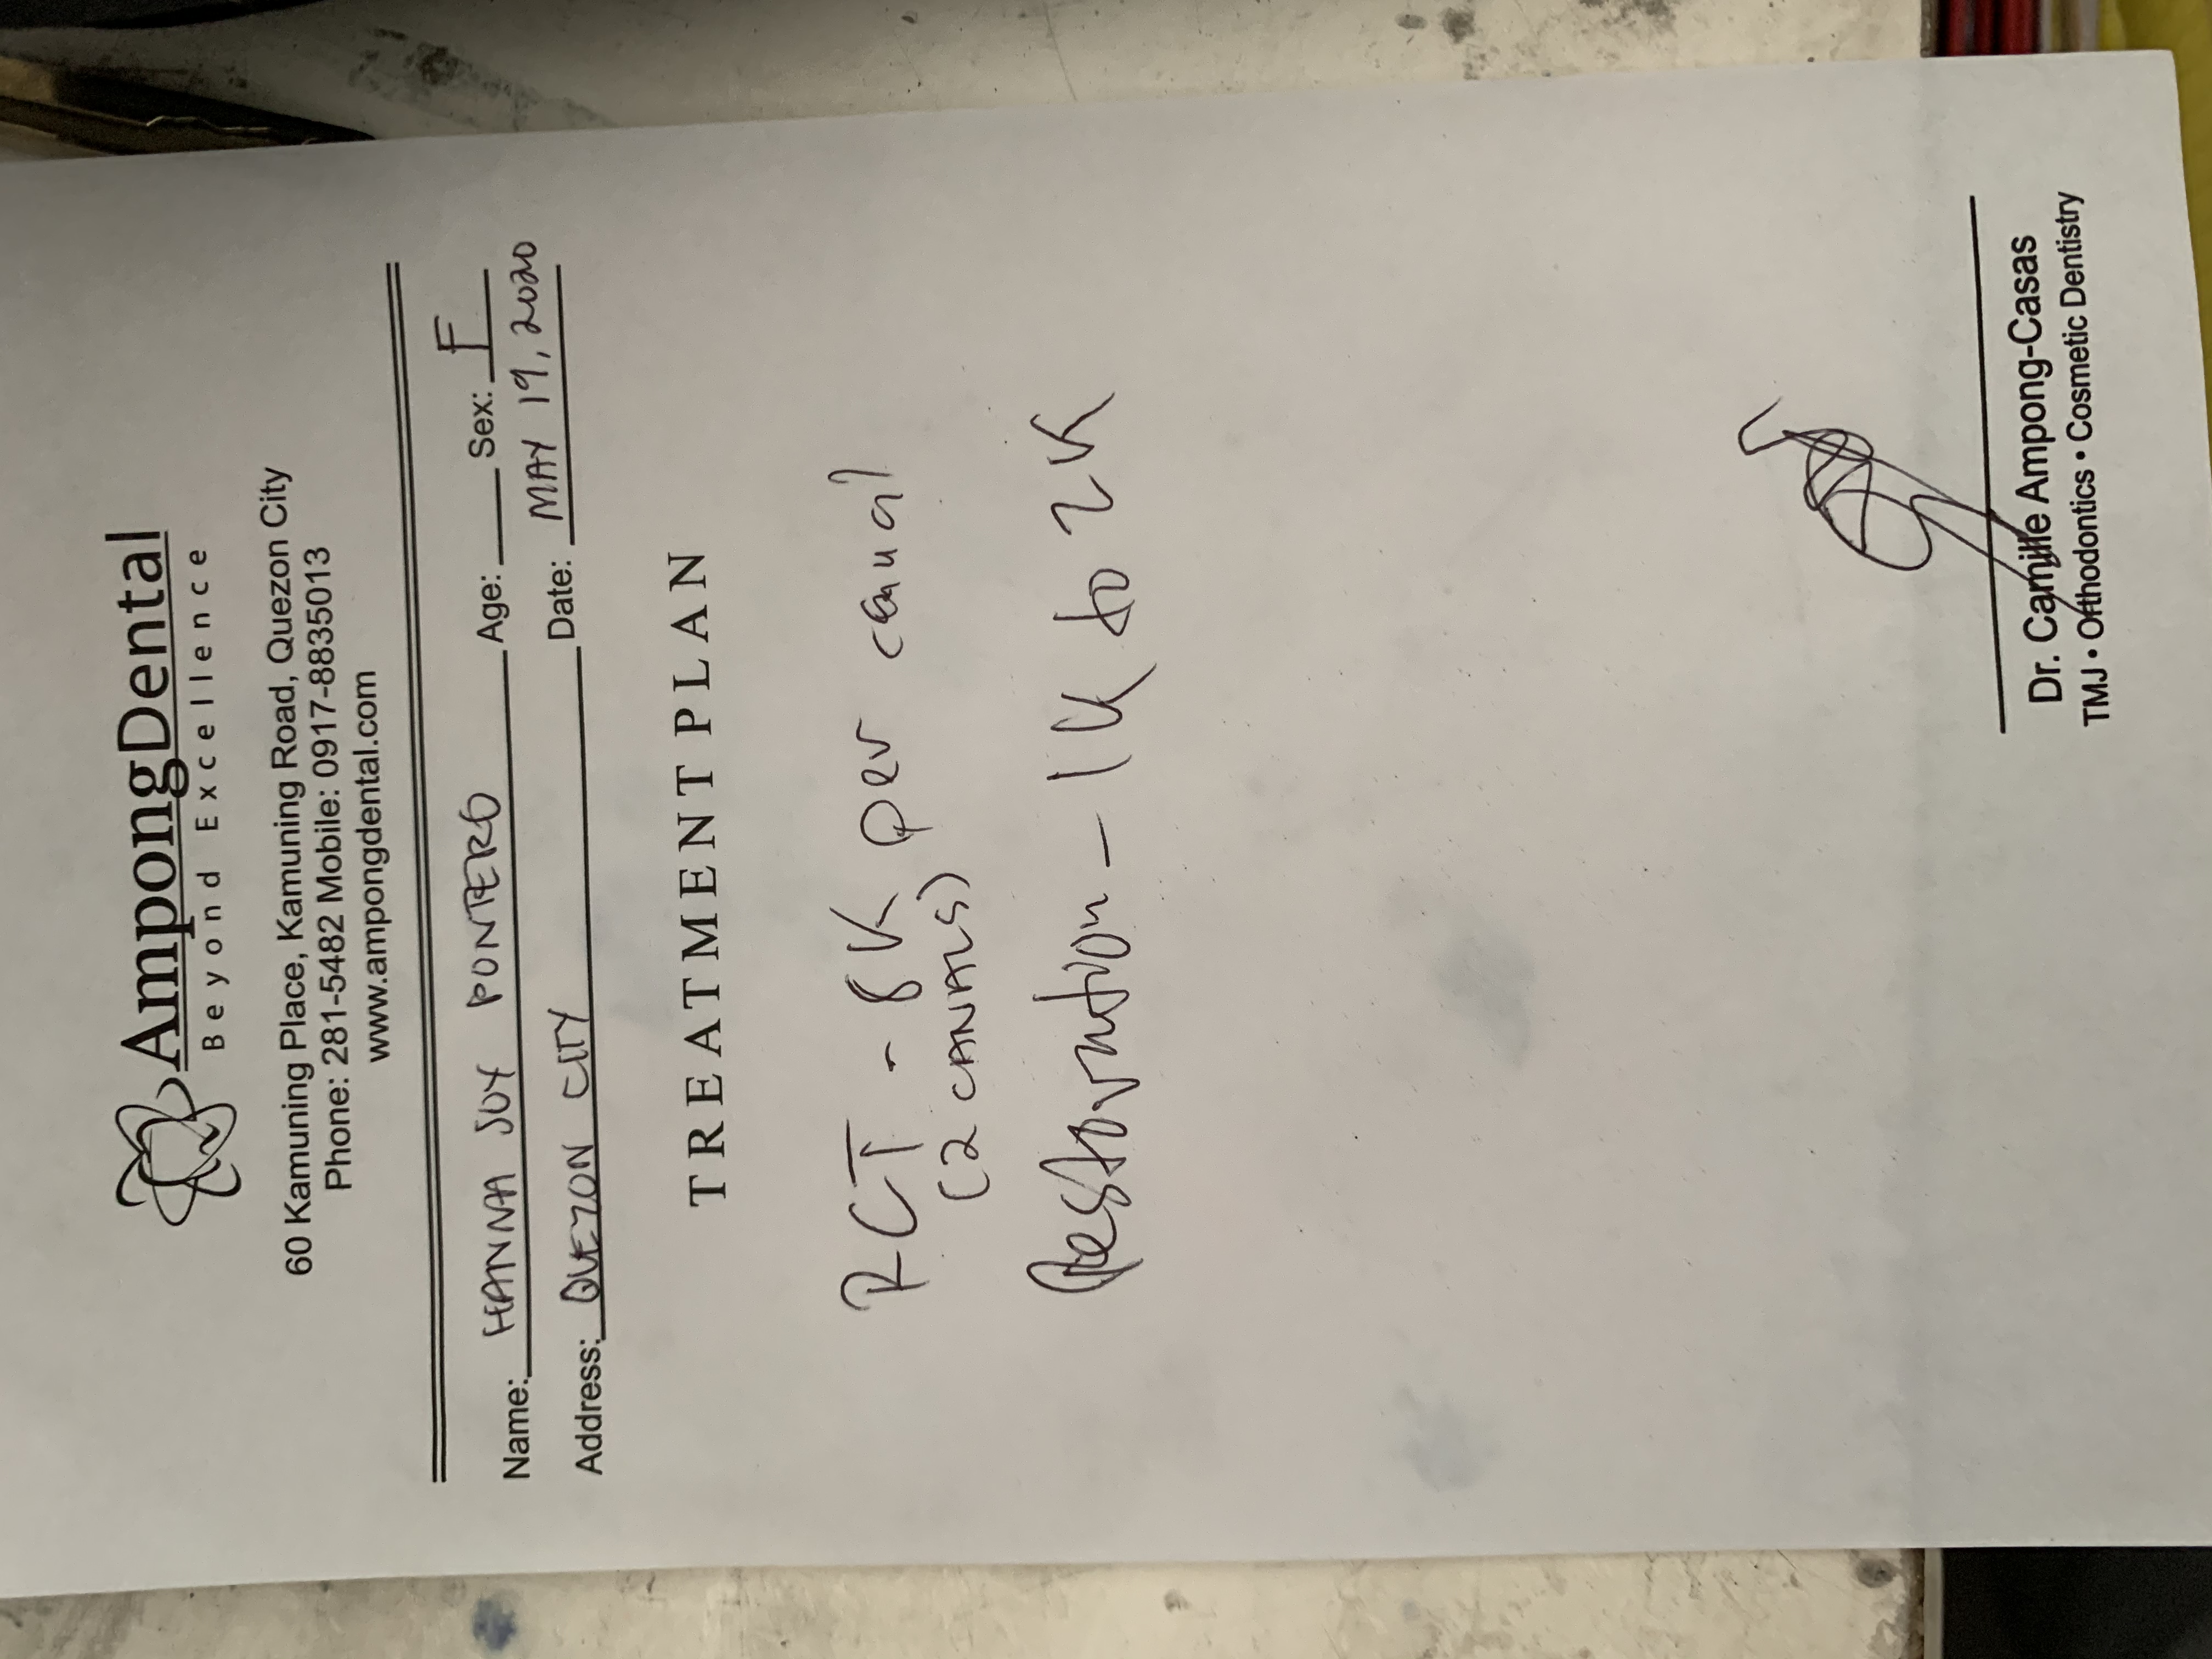 AmpongDental
Beyond Excellence
60 Kamuning Place, Kamuning Road, Quezon City
Phone: 281-5482 Mobile: 0917-8835013
www.ampongdental.com
Name: HANNA JOY PONTERO Age: Sex: F
Address: QUEZON CITY Date: MAY 19, 2020
TREATMENT PLAN
RCT - 8K per canal
(2 CANALS)
Restoration - 1K to 2K
Dr. Camille Ampong-Casas
TMJ • Orthodontics • Cosmetic Dentistry